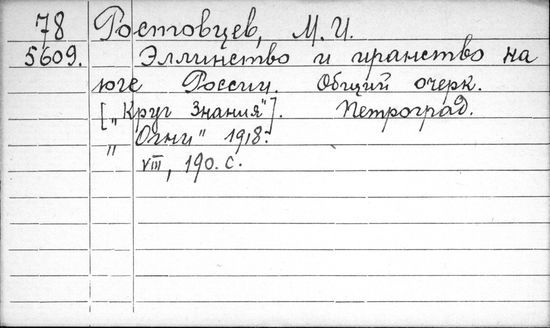 78 Ростовцев, М. И.
5609. Эллинство и иранство на
юге России. Общий очерк.
[„Круг Знания"]. Петроград.
„Огни" 1918.
VIII, 190. с.